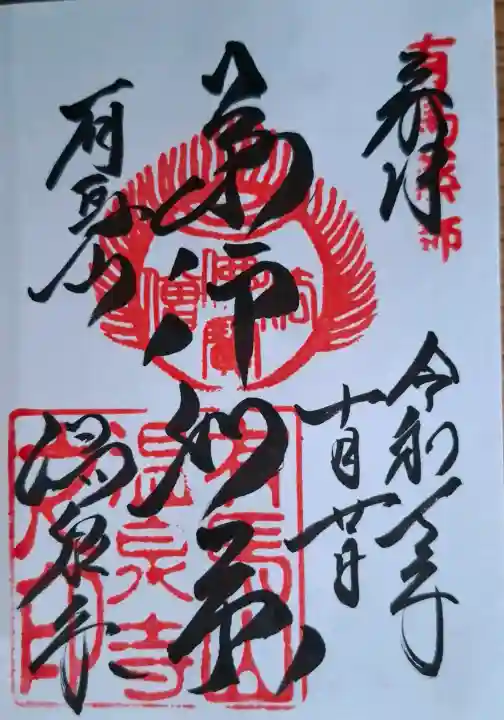 有馬薬師
奉拝
令和年
十月廿日
薬師如来
有馬山
温泉寺
有馬山
温泉寺